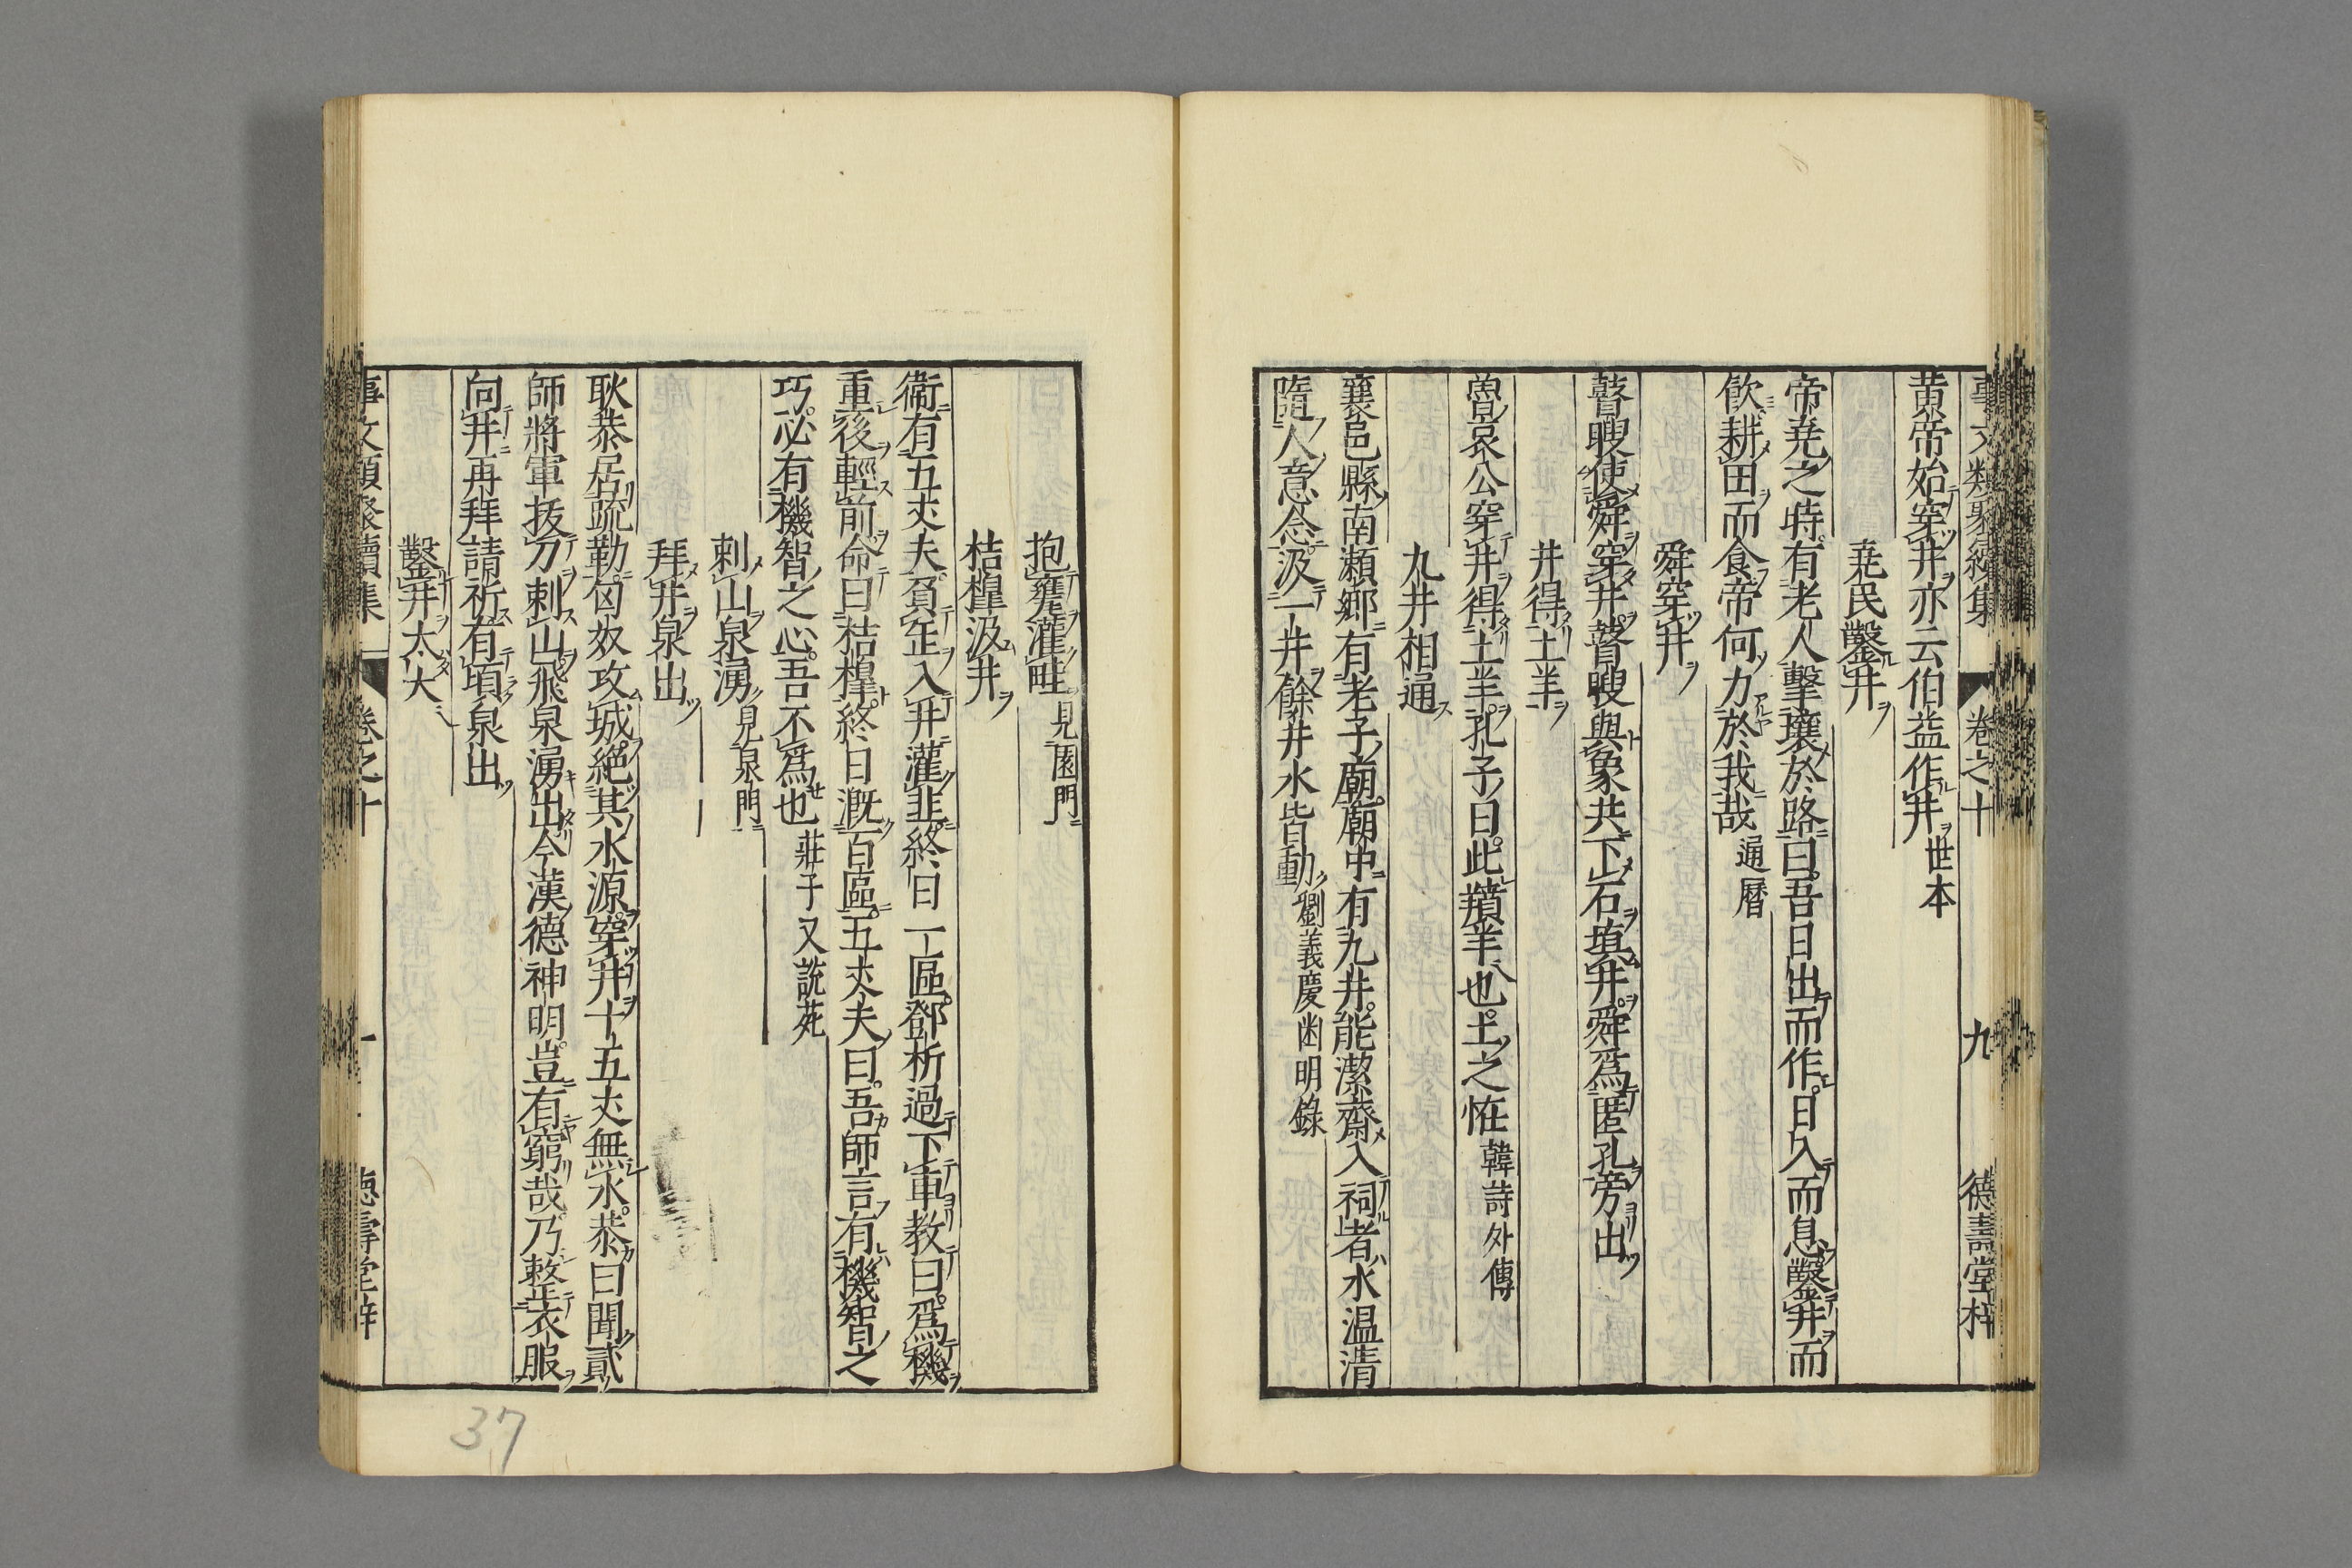 事文類聚續集 卷之十 九 德壽堂梓
黄帝始穿井亦云伯益作井世本
堯民鑿井
帝堯之時有老人擊壤於路曰吾日出而作日入而息鑿井而
飲耕田而食帝何力於我哉通曆
舜穿井
瞽瞍使舜穿井瞽瞍與象共下土石填井舜爲匿孔旁出
井得土羊
魯哀公穿井得土羊孔子曰此羵羊也土之恠韓詩外傳
九井相通
襄邑縣南瀬郷有老子廟廟中有九井能潔齋入祠者水温清
隨人意念汲一井餘井水皆動劉義慶幽明錄
抱甕灌畦見園門
桔橰汲井
衞有五丈夫貧缶入井灌韭終日一區鄧析過下車教曰爲機
重後輕前命曰桔橰終日漑百區五丈夫曰吾師言有機智之
巧必有機智之心吾不爲也莊子又説苑
刺山泉湧見泉門
拜井泉出
耿恭居疏勒匈奴攻城絕其水源穿井十五丈無水恭曰聞貳
師將軍拔刀刺山飛泉湧出今漢德神明豈有窮哉乃整衣服
向井再拜請祈有頃泉出
鑿井太大
事文類聚續集 卷之十 德壽堂梓
37